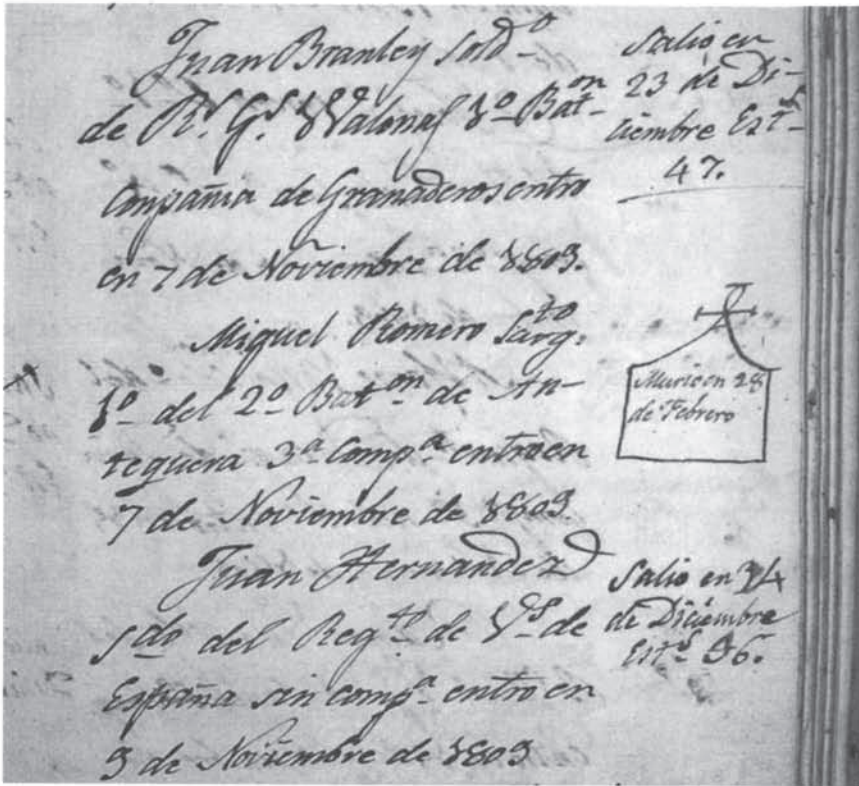 Juan Branley sold.º
de R.s G.s Walonas 1º Bat.on
Compañia de Granaderos entro
en 7 de Noviembre de 1809.
Salio en
23 de Di-
ciembre Est.s
47.
Miguel Romero Sarg.to
1º del 2º Bat.on de An-
tequera 3ª Comp.ª entro en
7 de Noviembre de 1809
Murio en 28
de Febrero
Juan Hernandez
sdo del Reg.to de V.s de
España sin comp.ª entro en
9 de Noviembre de 1809
Salio en
de Diciembre
Est.s 36.